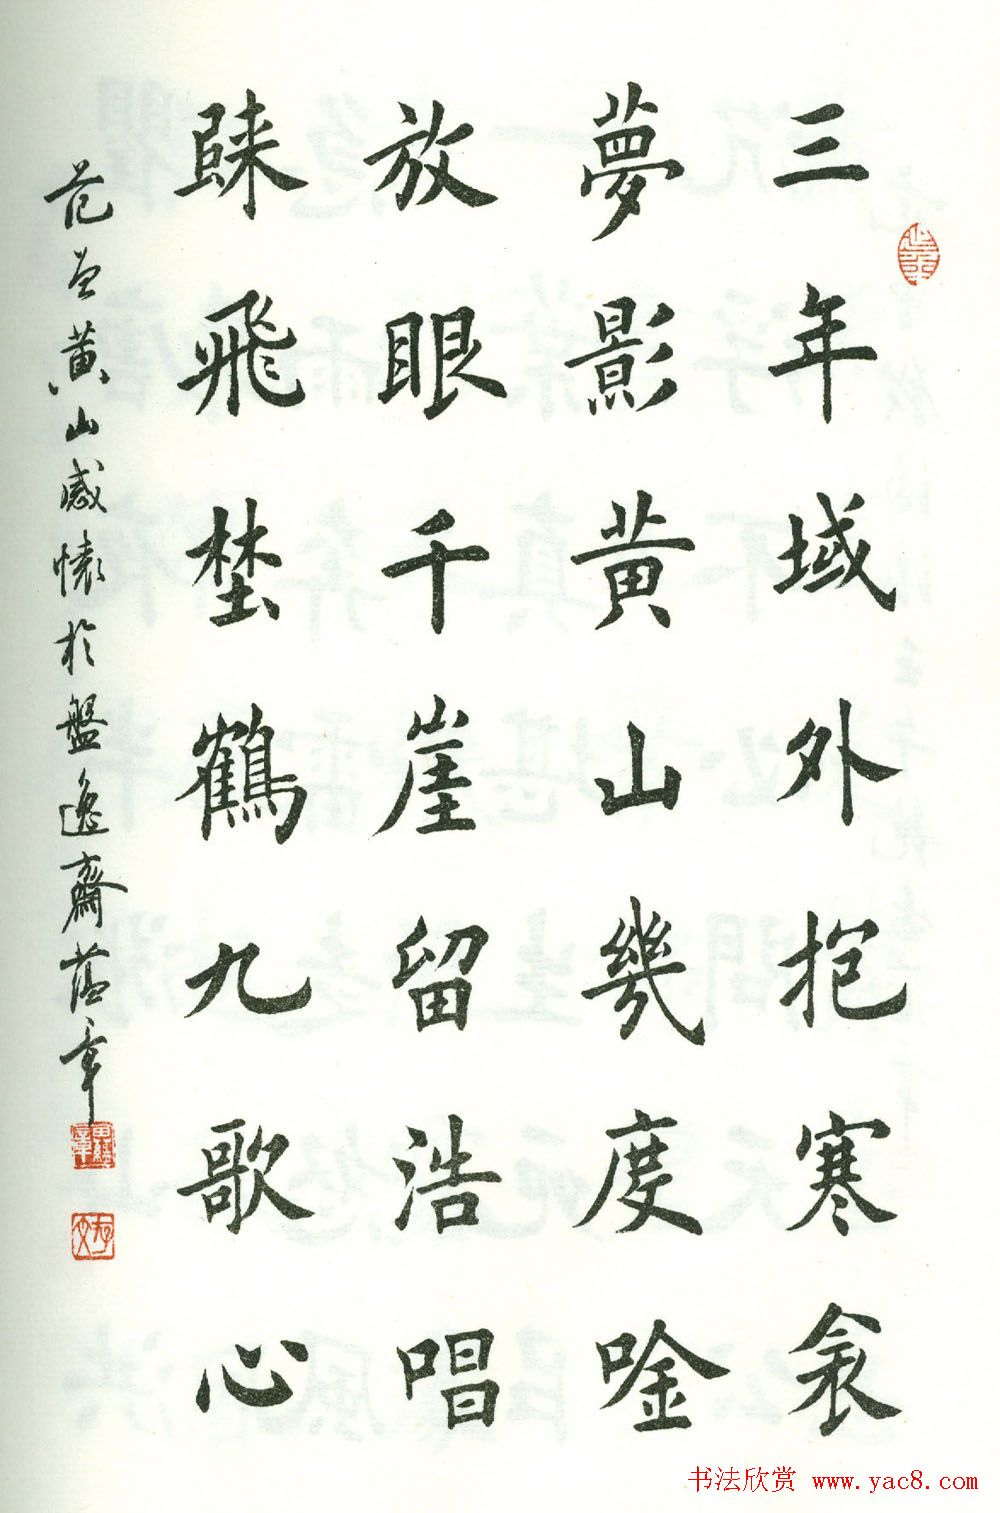 三年域外抱寒衾
夢影黄山幾度唫
放眼千崖留浩唱
飛埜鶴九歌心
范曾黄山感懷於盤逸齋蕴章
书法欣赏 www.yac8.com